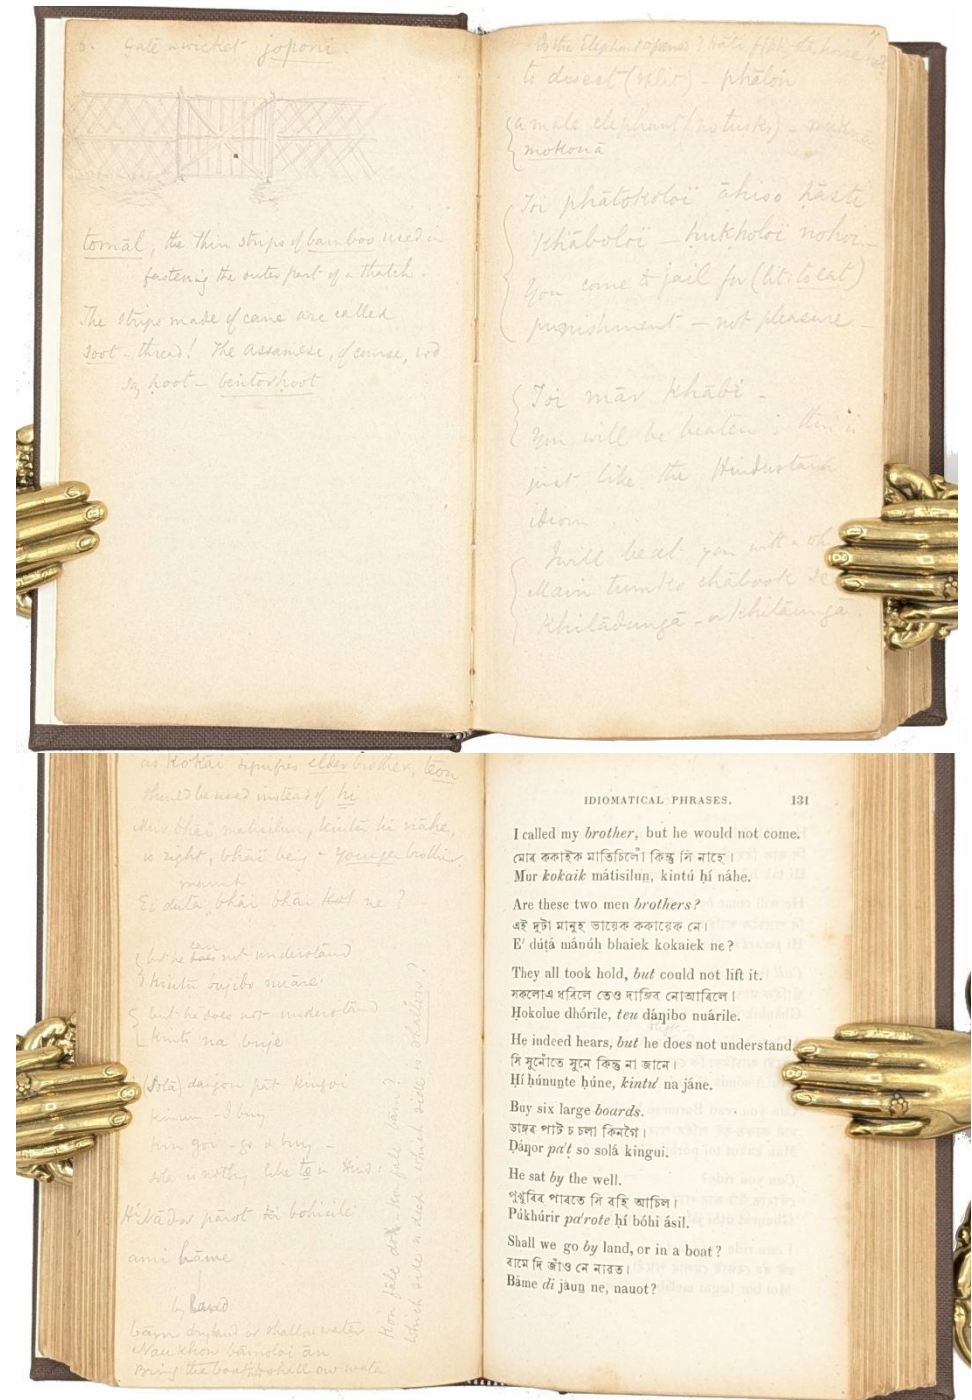 6. Gate or wicket joponi.
tomāl, the thin strips of bamboo used in
fastening the outer part of a thatch.
The strips made of cane are called
soot - thread! The Assamese, of course,
say hoot - bentorhoot
Is the Elephant
to dissect (split) - phālon
a male elephant (no tusks) - mukna
mokonā
Toi phātokoloi āhiso hāsti
khāboloi - hukholoi nohoi -
You come to jail for (lit: to eat)
punishment - not pleasure -
Toi mār khābi -
You will be beaten; this is
just like the Hindustani
idiom
I will beat you with a wh
Main tumko chābook se
Khilādungā - or Khilāungā.
as Kokai signifies elder brother, teon
should be used instead of hi
Mur bhāi matisilun, kintu hi nāhe,
is right, bhāi being a younger brother.
manuh
Ei duta bhāi bhāi hoi ne?
can
but he does not understand
Kintu bujibo nuāre.
but he does not understand
kintu na buje
(Solā) daigor pāt kingoi
kinun - I buy
kin goi - go & buy -
sola is nothing like to in Hind:
Hi Nādor pārot hi bohisile
ami bāme
by Land
bām dryland or shallow water
Nau khon bāmoloi ān
Bring the boat into shallow water
which side indeed - which side is shallow?
IDIOMATICAL PHRASES. 131
I called my brother, but he would not come.
মোৰ ককাইক মাতিচিলোঁ কিন্তু সি নাহে।
Mur kokaik mátisilun̤, kintú ḥí náhe.
Are these two men brothers?
এই দুটা মানুহ ভায়েক ককায়েক নে।
E' dútá mánúh bhaiek kokaiek ne?
They all took hold, but could not lift it.
সকলোএ ধৰিলে তেও দাঙ্গিব নোআৰিলে।
Ḥokolue dhórile, teu dáŋibo nuárile.
He indeed hears, but he does not understand.
সি সুনোঁতে সুনে কিন্তু না জানে।
Hí ḥúnun̤te ḥúne, kintú na jáne.
Buy six large boards.
ডাঙ্গৰ পাট চ চলা কিনগৈ।
Dáŋor pa't so solá kingui.
He sat by the well.
পুখুৰিৰ পাৰতে সি বহি আচিল।
Púkhúrir pa'rote ḥí bóhi ásil.
Shall we go by land, or in a boat?
বামে দি জাঁও নে নাৱত।
Báme di jáun̤ ne, nauot?